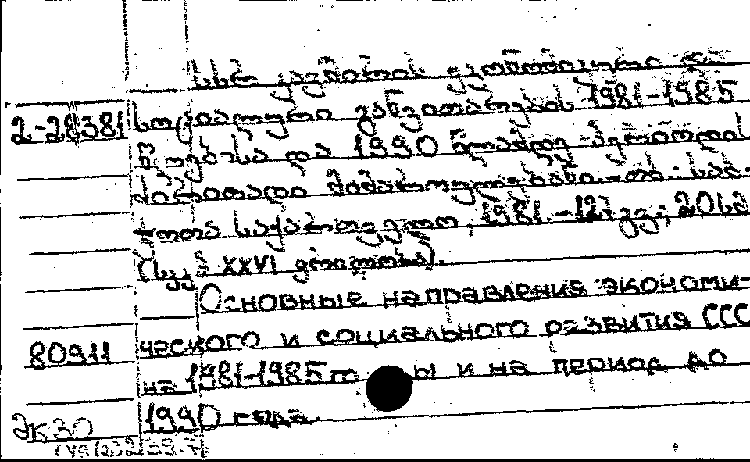 სსრ კავშირის ეკონომიკური და
2-28381 სოციალური განვითარების 1981-1985
წლებისა და 1990 წლამდე პერიოდის
ძირითადი მიმართულებანი. - თბ.: საბ-
ჭოთა საქართველო, 1981. - 127 გვ.; 20სმ
(სკკპ XXVI ყრილობა).
Основные направления экономи-
80911 ческого и социального развития ССС
на 1981-1985 го ы и на период до
ЭК30 1990 года.